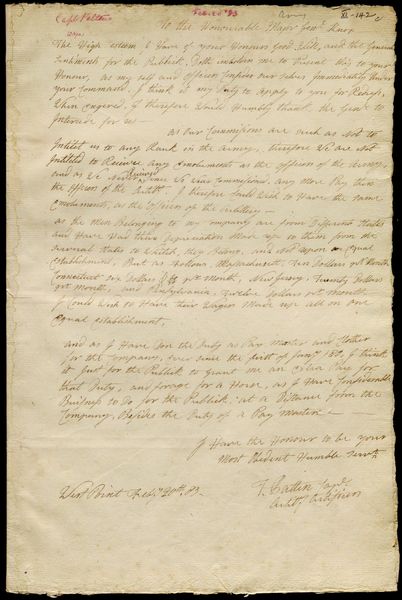 Feb. 20th 83 Army XI-142
To the Honourable Major Genl. Knox
The High esteem I Have of your Honours Good Will, and
for the Publick, Doth me to Present this to your
Honour, as my self and officers our selves Immediately Under
your Command. I think it my Duty to Apply to you for Redress,
When Ingered, I therefore Would Humbly think the Genl. to
Interseed for us—
as our Commissions are such as Not to
Intitel us to any Rank in the Army, therefore We are Not
Intitled to Recieve any Emoluments as the officers of the Army,
and as We Never Received since We ware Commissiond, any More Pay then
the officers of the I therefore Could Wish to Have the same
Emoluments, as the officers of the Artillery—
as the Men Belonging to my Company are from Different States
and Have Had their Depreciation Made up to them from the
several States to Which they Belong, and Not upon Equal
Establishment, But as Follows, Massachusetts, Ten Dollars pr Month
Connecticut six Dollars pr Month, New Jersey, Twenty Dollars
pr Month, and Pensylvania, Twelve Dollars pr Month
I Could Wish to Have their Wages Made up all on one
Equal Establishment,
and as I Have Don the Duty as Pay Master and Clother
for the Company, Ever since the first of Jany. I think
it Just for the Publick to Grant me an Extra Pay for
that Duty, and forage for a Horse, as I Have Considerable
Buisness to Do for the Publick at a Distance from the
Company, Besides the Duty of a Pay Master—
I Have the Honour to be your
Most Obedient Humble servt.
West Point Feby. 20th. 83.
Capt.
Artily. Artificers